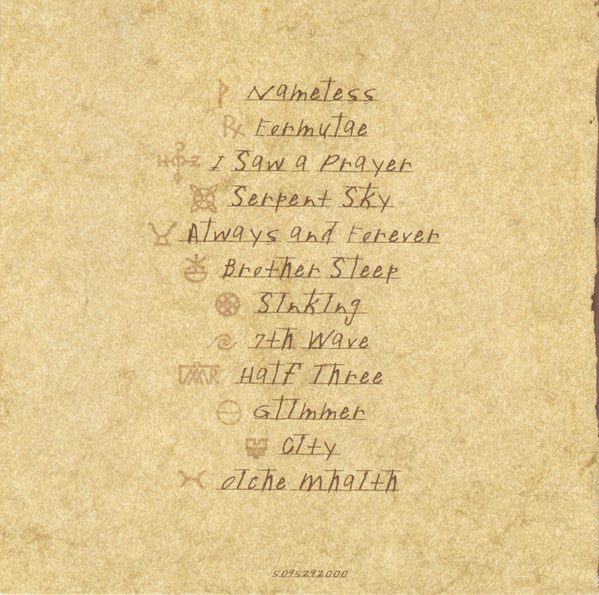 Nameless
Formulae
I Saw a Prayer
Serpent Sky
Always and Forever
Brother Sleep
Sinking
7th Wave
Half Three
Glimmer
City
oiche Mhaith
5095292000